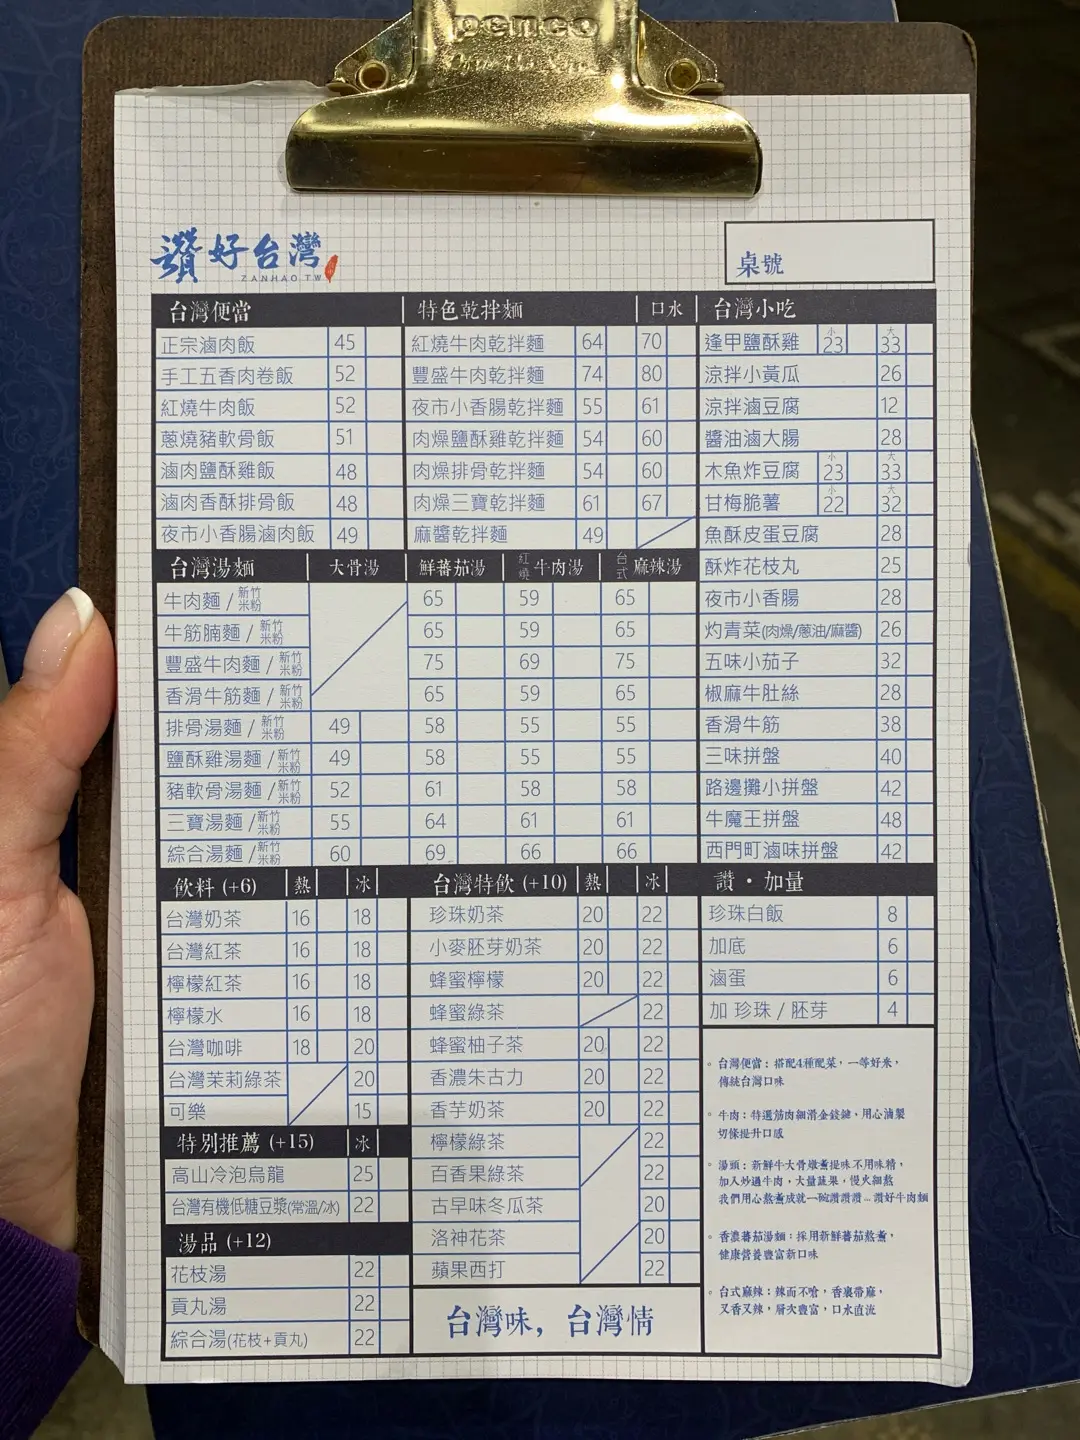 penco
讚好台灣
ZANHAO.TW
桌號
台灣便當
正宗滷肉飯 45
手工五香肉卷飯 52
紅燒牛肉飯 52
蔥燒豬軟骨飯 51
滷肉鹽酥雞飯 48
滷肉香酥排骨飯 48
夜市小香腸滷肉飯 49
特色乾拌麵 口水
紅燒牛肉乾拌麵 64 70
豐盛牛肉乾拌麵 74 80
夜市小香腸乾拌麵 55 61
肉燥鹽酥雞乾拌麵 54 60
肉燥排骨乾拌麵 54 60
肉燥三寶乾拌麵 61 67
麻醬乾拌麵 49
台灣小吃
逢甲鹽酥雞 小 23 大 33
涼拌小黃瓜 26
涼拌滷豆腐 12
醬油滷大腸 28
木魚炸豆腐 小 23 大 33
甘梅脆薯 小 22 大 32
魚酥皮蛋豆腐 28
酥炸花枝丸 25
夜市小香腸 28
灼青菜(肉燥/蔥油/麻醬) 26
五味小茄子 32
椒麻牛肚絲 28
香滑牛筋 38
三味拼盤 40
路邊攤小拼盤 42
牛魔王拼盤 48
西門町滷味拼盤 42
台灣湯麵 大骨湯 鮮蕃茄湯 紅燒牛肉湯 台式麻辣湯
牛肉麵 / 新竹米粉 65 59 65
牛筋腩麵 / 新竹米粉 65 59 65
豐盛牛肉麵 / 新竹米粉 75 69 75
香滑牛筋麵 / 新竹米粉 65 59 65
排骨湯麵 / 新竹米粉 49 58 55 55
鹽酥雞湯麵 / 新竹米粉 49 58 55 55
豬軟骨湯麵 / 新竹米粉 52 61 58 58
三寶湯麵 / 新竹米粉 55 64 61 61
綜合湯麵 / 新竹米粉 60 69 66 66
飲料 (+6) 熱 冰
台灣奶茶 16 18
台灣紅茶 16 18
檸檬紅茶 16 18
檸檬水 16 18
台灣咖啡 18 20
台灣茉莉綠茶 20
可樂 15
特別推薦 (+15) 冰
高山冷泡烏龍 25
台灣有機低糖豆漿(常溫/冰) 22
湯品 (+12)
花枝湯 22
貢丸湯 22
綜合湯(花枝+貢丸) 22
台灣特飲 (+10) 熱 冰
珍珠奶茶 20 22
小麥胚芽奶茶 20 22
蜂蜜檸檬 20 22
蜂蜜綠茶 22
蜂蜜柚子茶 20 22
香濃朱古力 20 22
香芋奶茶 20 22
檸檬綠茶 22
百香果綠茶 22
古早味冬瓜茶 20
洛神花茶 20
蘋果西打 22
台灣味，台灣情
讚・加量
珍珠白飯 8
加底 6
滷蛋 6
加 珍珠 / 胚芽 4
台灣便當：搭配4種配菜，一等好米，
傳統台灣口味
牛肉：特選筋肉細滑金錢𦟌，用心滷製
切條提升口感
湯頭：新鮮牛大骨燉熬提味不用味精，
加入炒過牛肉，大量蔬果，慢火細熬
我們用心熬煮成就一碗讚讚讚...讚好牛肉麵
香濃蕃茄湯麵：採用新鮮蕃茄熬煮，
健康營養豐富新口味
台式麻辣：辣而不嗆，香裏帶麻，
又香又辣，層次豐富，口水直流